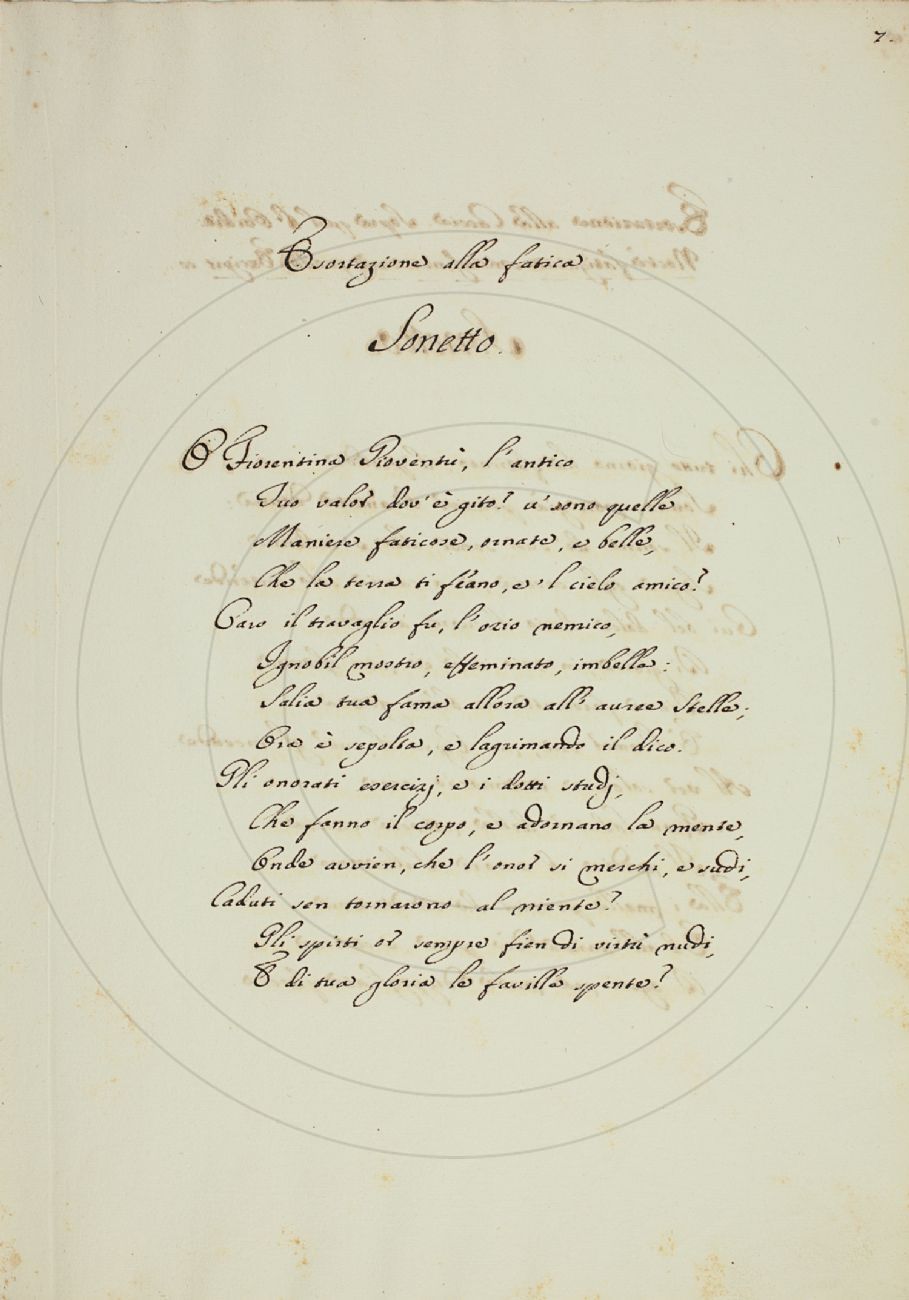 7.
Esortazione alla fatica
Sonetto.
O Fiorentina Gioventù, l'antico
Tuo valor dov'è gito? u' sono quelle
Maniere faticose, ornate, e belle,
Che la terra ti féano, e 'l cielo amico?
Caro il travaglio fu, l'ozio nemico,
Ignobil mostro, effeminato, imbelle:
Salia tua fama allora all' auree Stelle;
Ora è sepolta, e lagrimando il dico.
Gli onorati esercizj, e i dotti studj,
Che fanno il corpo, e adornano la mente,
Onde avvien, che l'onor si merchi, e sudi,
Caduti sen tornarono al niente?
Gli spirti or sempre fien di virtù nudi,
E di tua gloria le faville spente?